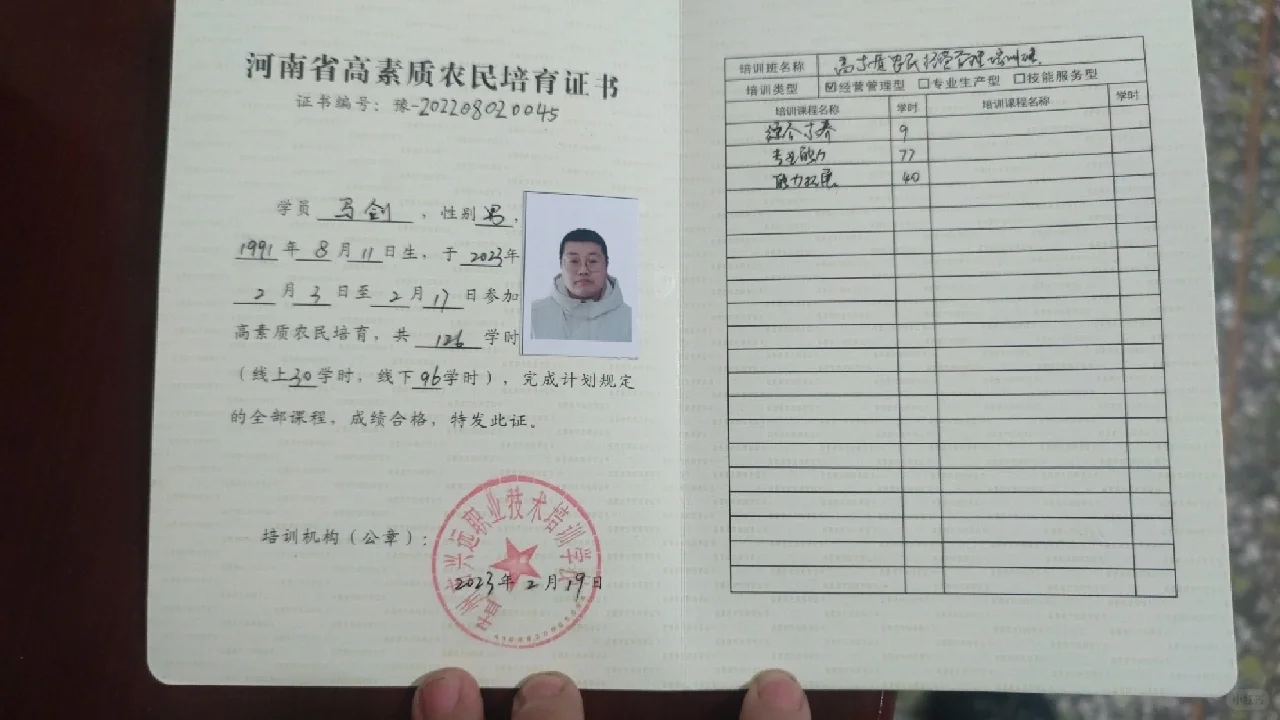 河南省高素质农民培育证书
证书编号：豫-202208020045
学员 马剑 ，性别 男，
1991 年 8 月 11 日生，于 2023年
2 月 3 日至 2 月 17 日参加
高素质农民培育，共 126 学时
（线上30学时，线下96学时），完成计划规定
的全部课程，成绩合格，特发此证。
培训机构（公章）：
兴远职业技术培训学校
2023年 2 月 19 日
培训班名称 高素质农民经营管理培训班
培训类型 ☑经营管理型 □专业生产型 □技能服务型
培训课程名称 学时 培训课程名称 学时
综合素养 9
专业能力 77
能力拓展 40
小红书